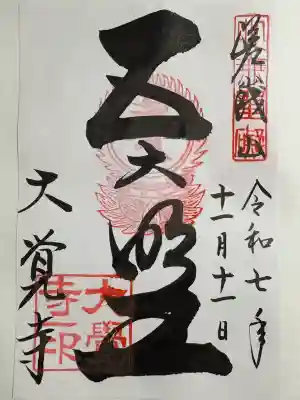 嵯峨山
令和七年
十一月十一日
五大明王
大覚寺
大覺寺印